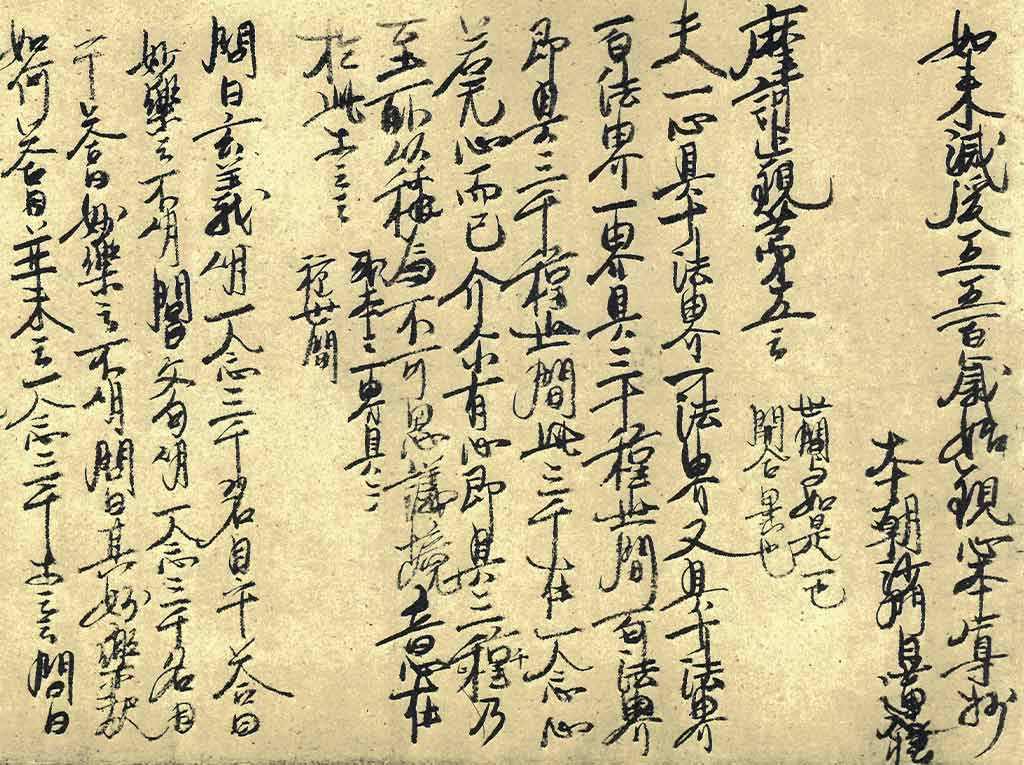 如来滅後五五百歳始観心本尊抄
本朝沙門日蓮撰
摩訶止観第五云
世間与如是一也
開合異也
夫一心具十法界一法界又具十法界
百法界一界具三十種世間百法界
即具三千種世間此三千在一念心
若无心而已介尓有心即具三千乃
至所以称為不可思議境意在
於此等云云
或本云一界具三
種世間
問曰玄義明一念三千名目乎答曰
妙楽云不明問曰文句明一念三千名目
乎答曰妙楽云不明問曰其妙楽釈
如何答曰並未云一念三千等云云問曰